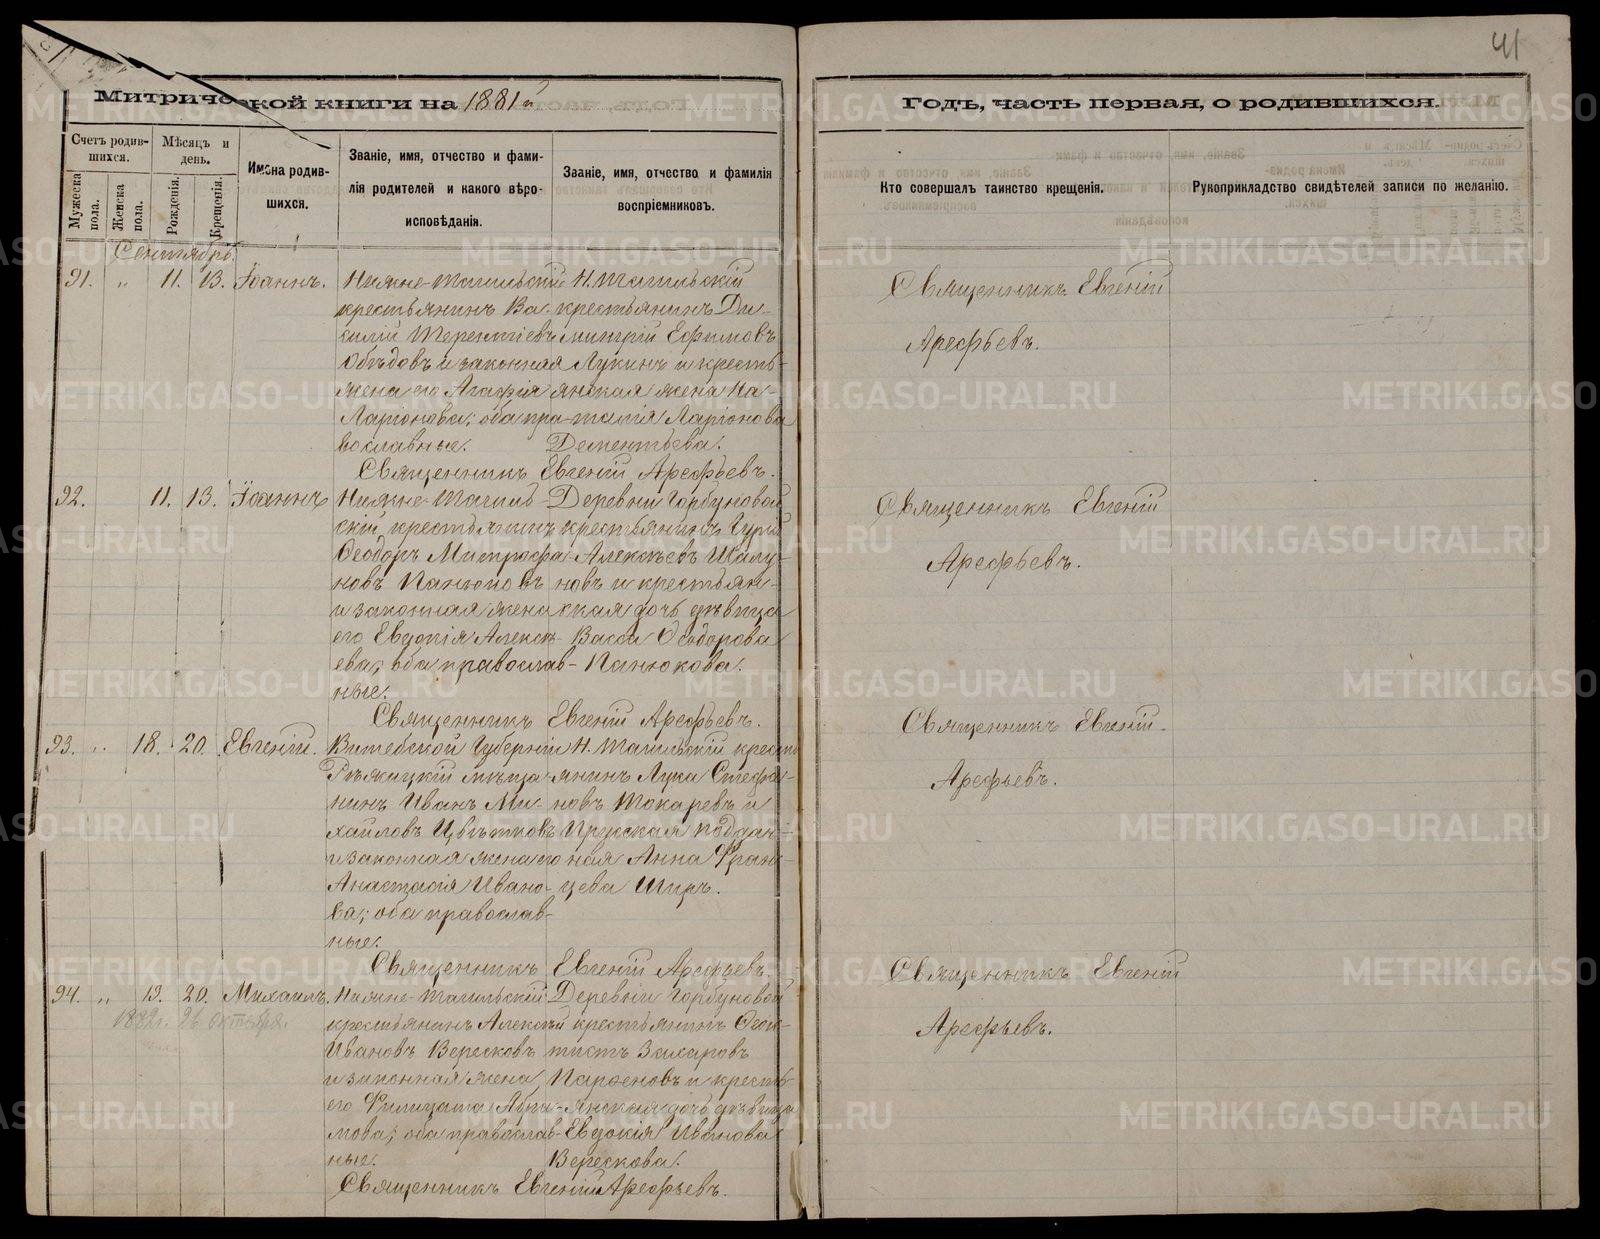 41
Митрической книги на 1881 й
Годъ, часть первая, о родившихся.
Счетъ родив-
шихся.
Мужеска
пола.
Женска
пола.
Мѣсяцъ и
день.
Рожденія.
Крещенія.
Имена родив-
шихся.
Званіе, имя, отчество и фами-
лія родителей и какого вѣро-
исповѣданія.
Званіе, имя, отчество и фамилія
воспріемниковъ.
Кто совершалъ таинство крещенія.
Рукоприкладство свидѣтелей записи по желанію.
Сентябрь.
91. „ 11. 13. Іоаннъ.
Нижне-Тагильскій
крестьянинъ Ва-
силій Терентіевъ
Обѣдовъ и законная
жена его Агафія
Ларіонова; оба пра-
вославные.
Н. Тагильскій
крестьянинъ Ди-
митрій Ефимовъ
Лукинъ и кресть-
янская жена На-
талія Ларіонова
Дементьева.
Священникъ Евгеній Арефьевъ.
Священникъ Евгеній
Арефьевъ.
92. 11. 13. Іоаннъ
Нижне-Тагиль-
скій крестьянинъ
Ѳеодоръ Митрофа-
новъ Панюковъ
и законная жена
его Евдокія Алексѣ-
ева; оба православ-
ные.
Деревни Горбуновой
крестьянинъ Гурій
Алексѣевъ Шалу-
новъ и крестьян-
ская дочь дѣвица
Васса Ѳеодорова
Панюкова.
Священникъ Евгеній Арефьевъ.
Священникъ Евгеній
Арефьевъ.
93. „ 18. 20. Евгеній.
Витебской Губерніи
Рѣжицкій мѣща-
нинъ Иванъ Ми-
хайловъ Цвѣтковъ
и законная жена его
Анастасія Ивано-
ва; оба православ-
ные.
Н. Тагильскій кресть-
янинъ Лука Стефа-
новъ Токаревъ и
Прусская поддан-
ная Анна Фран-
цева Ширъ.
Священникъ Евгеній Арефьевъ.
Священникъ Евгеній
Арефьевъ.
94. „ 19. 20. Михаилъ.
1882 г. 26 октября.
Нижне-Тагильскій
крестьянинъ Алексѣй
Ивановъ Вересковъ
и законная жена
его Филицата Абра-
мова; оба православ-
ные.
Деревни Горбуновой
крестьянинъ Ѳеок-
тистъ Захаровъ
Парѳеновъ и кресть-
янская дочь дѣвица
Евдокія Иванова
Верескова.
Священникъ Евгеній Арефьевъ.
Священникъ Евгеній
Арефьевъ.
METRIKI.GASO-URAL.RU